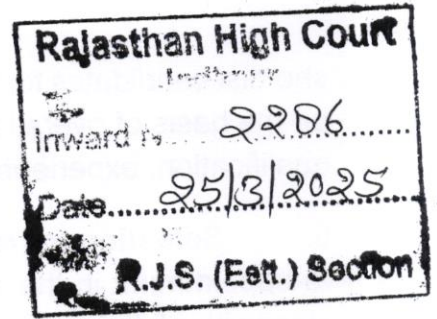 Rajasthan High Court
Jodhpur
Inward N. 2286
Date 25/3/2025
R.J.S. (Estt.) Section